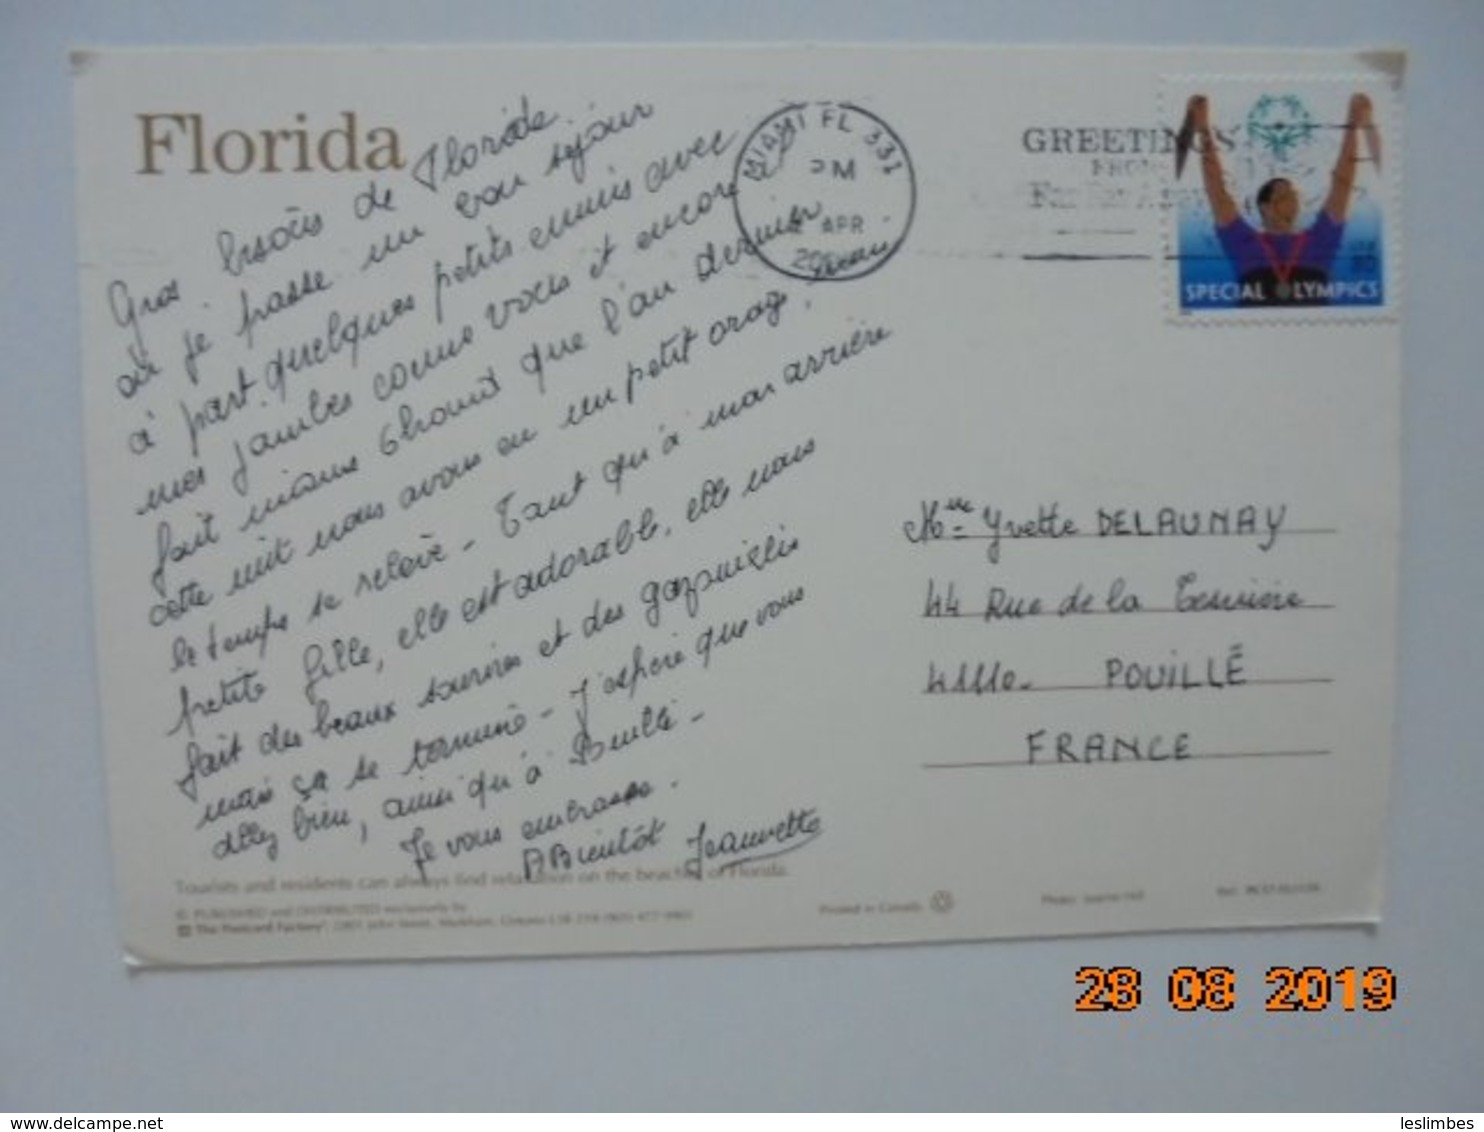 Florida
Gros bisous de Floride.
où je passe un bon séjour
à part quelques petits ennuis avec
mes jambes comme vous et encore il
fait moins chaud que l'an dernier
cette nuit nous avons eu un petit orage,
le temps se relève - Tant qu'à mon arrière
petite fille, elle est adorable, elle nous
fait des beaux sourires et des gazouillis
mais ça se termine - J'espère que vous
allez bien, ainsi qu'à
Je vous embrasse.
A Bientôt Jeannette
MIAMI FL 331
PM
APR
20
GREETINGS
FROM
USA
80
SPECIAL OLYMPICS
Mme Yvette DELAUNAY
44 Rue de la
41110 - POUILLÉ
FRANCE
Tourists and residents can always find relaxation on the beaches of Florida.
© PUBLISHED and DISTRIBUTED exclusively by
The Postcard Factory® 2801 John Street, Markham, Ontario L3R 2Y8 (905) 477-9901
Printed in Canada
28 08 2019
delcampe.net
leslimbes